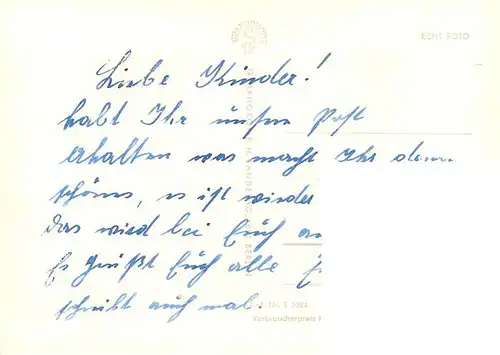 ECHT FOTO
Liebe Kinder!
habt Ihr unsere Post
erhalten was macht Ihr denn
schönes, es ist wieder
das wird bei Euch
Es Grüßt Euch alle
schreibt auch mal.
Nr. S
Verbraucherpreis
BERLIN